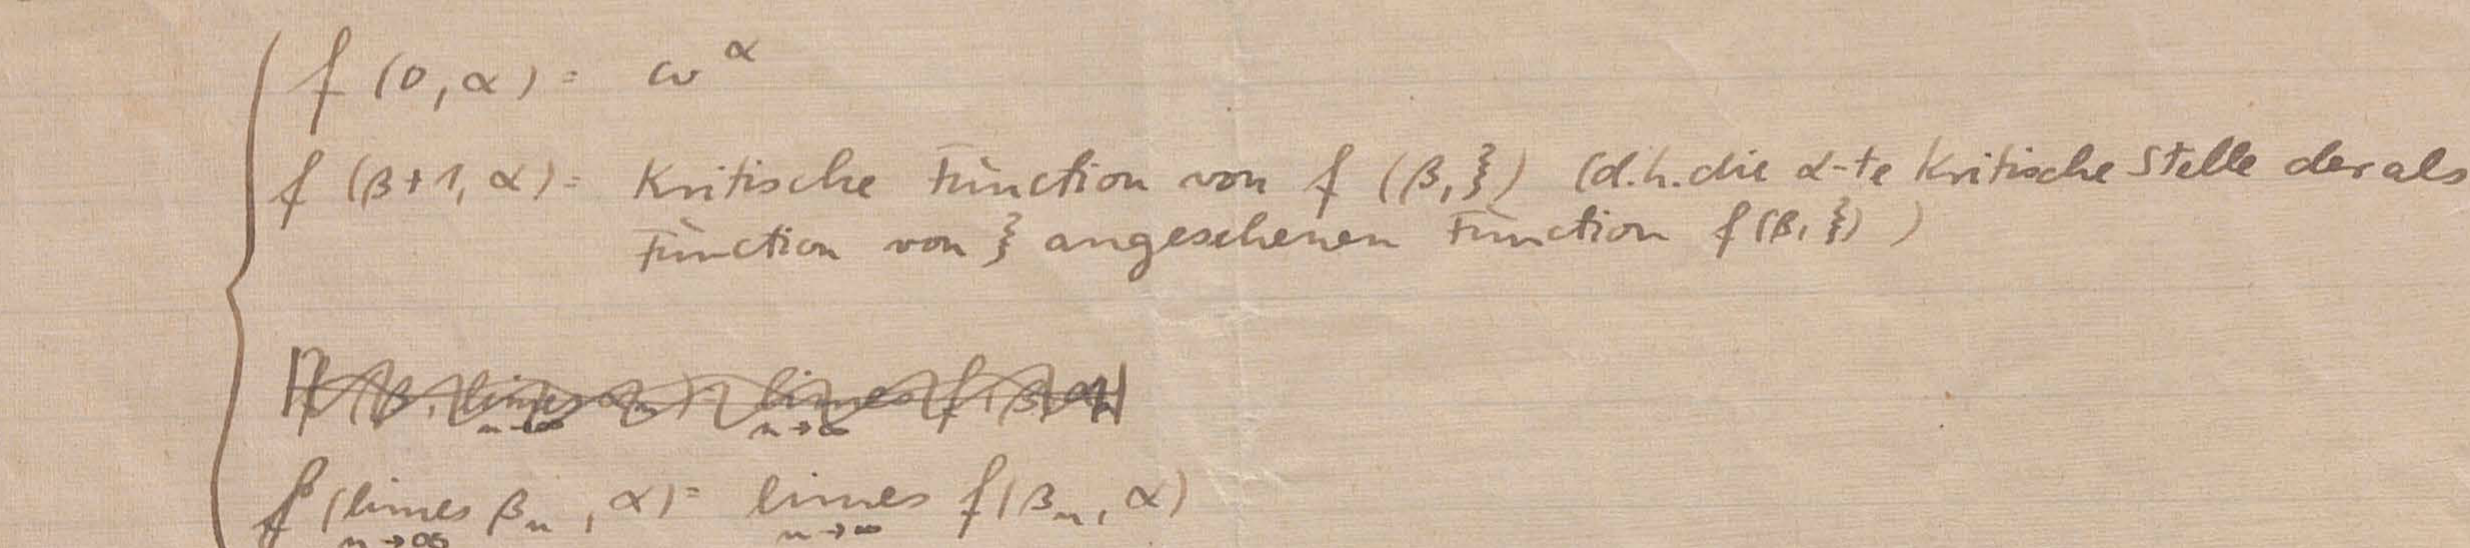 f (0, α) = ω^α
f (β+1, α) = Kritische Function von f (β, ξ) (d.h. die α-te Kritische Stelle der als
Function von ξ angesehenen Function f (β, ξ) )
f (β, limes αn) = limes f (β, αn)
n→∞ n→∞
f (limes βn , α) = limes f (βn, α)
n→∞ n→∞